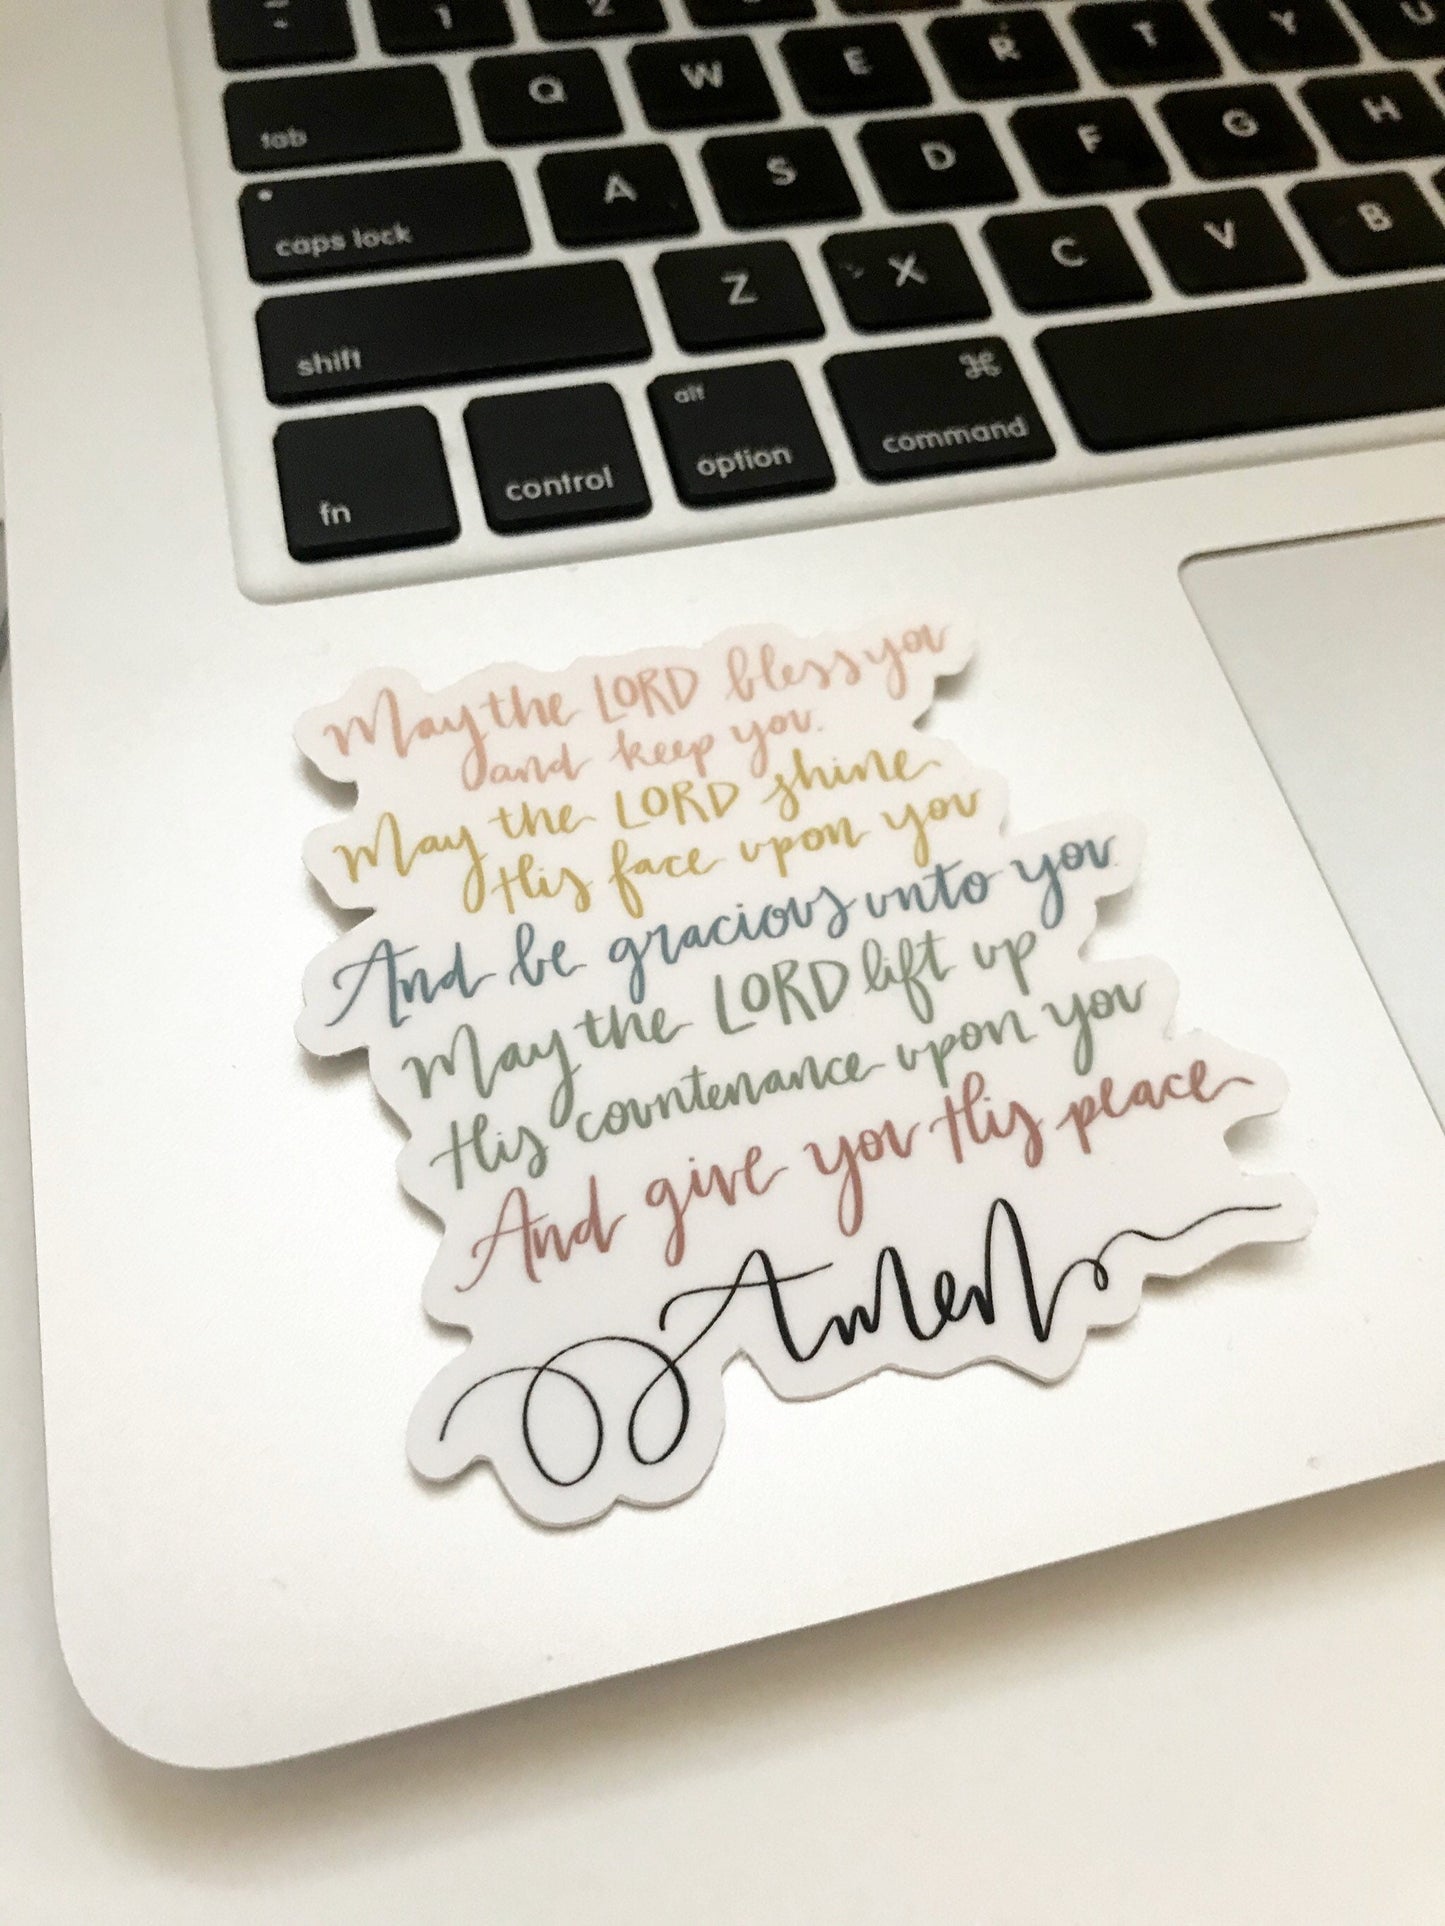 1 2
tab Q W E R T Y U
caps lock A S D F G H
shift Z X C V B
alt ⌘
fn control option command
May the LORD bless you
and keep you.
May the LORD shine
His face upon you
And be gracious unto you.
May the LORD lift up
His countenance upon you
And give you His peace
Amen